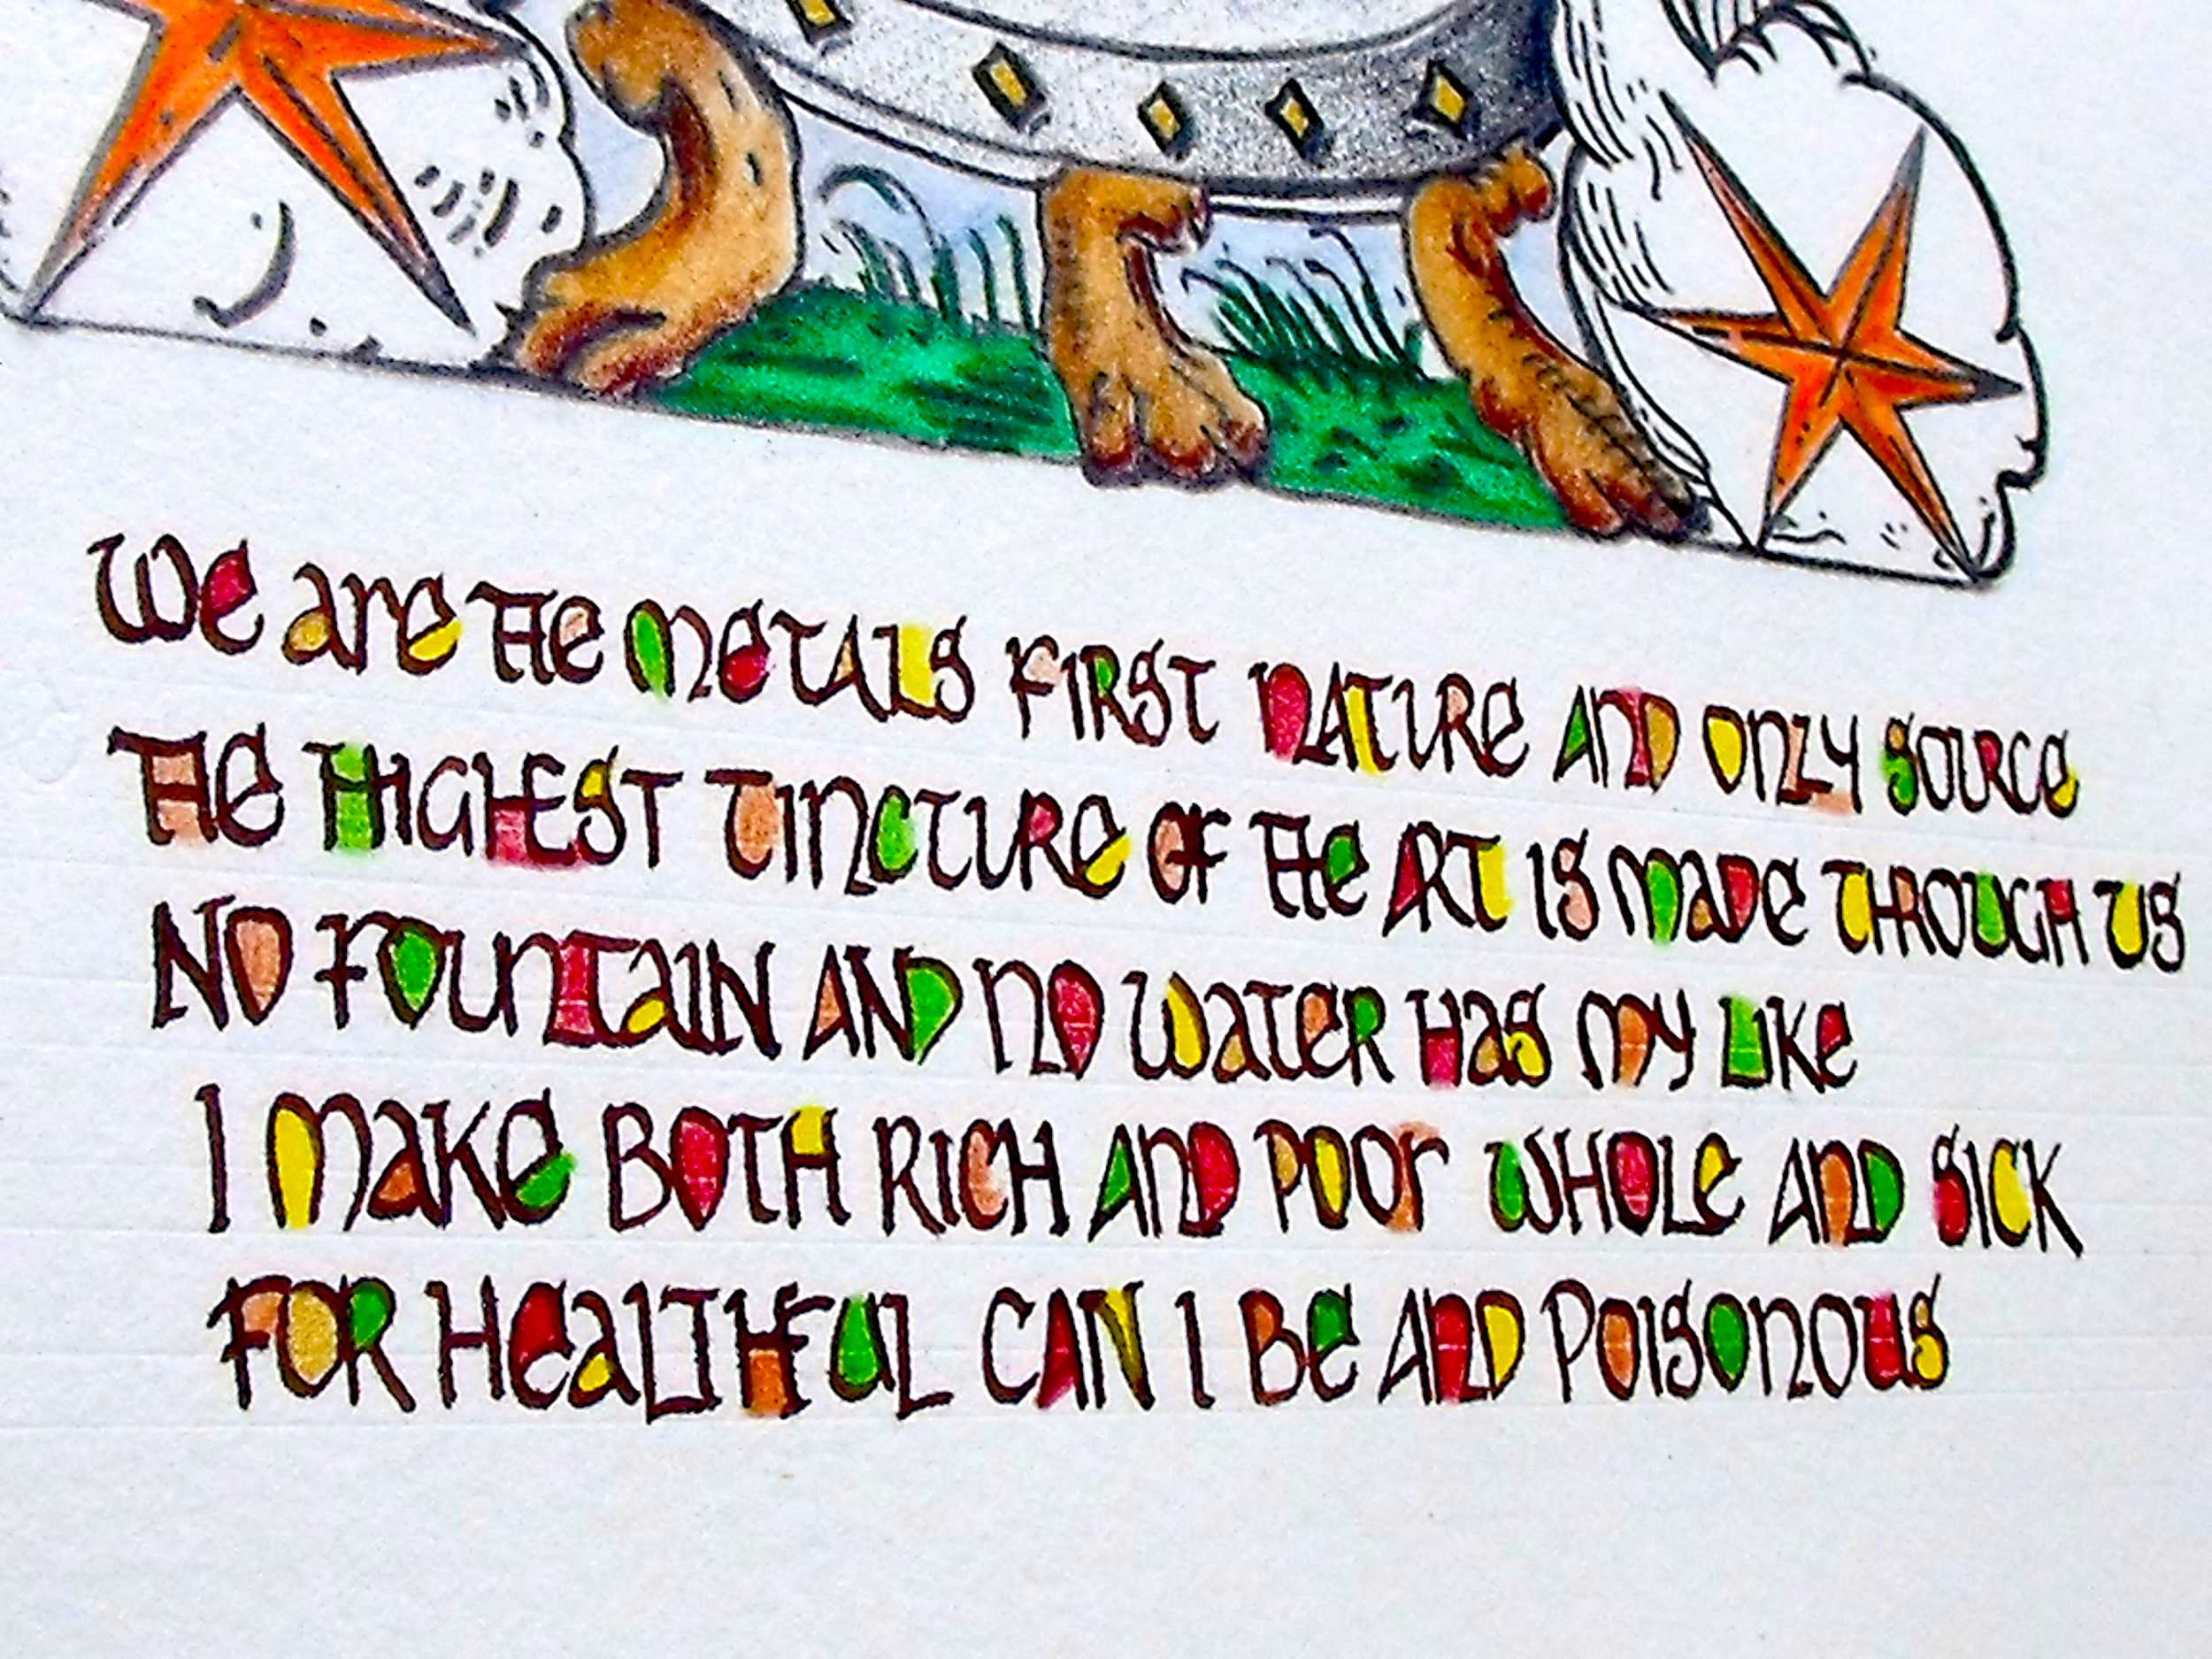 We are the metals first nature and only source
The highest tincture of the art is made through us
No fountain and no water has my like
I make both rich and poor whole and sick
For healthful can I be and poisonous